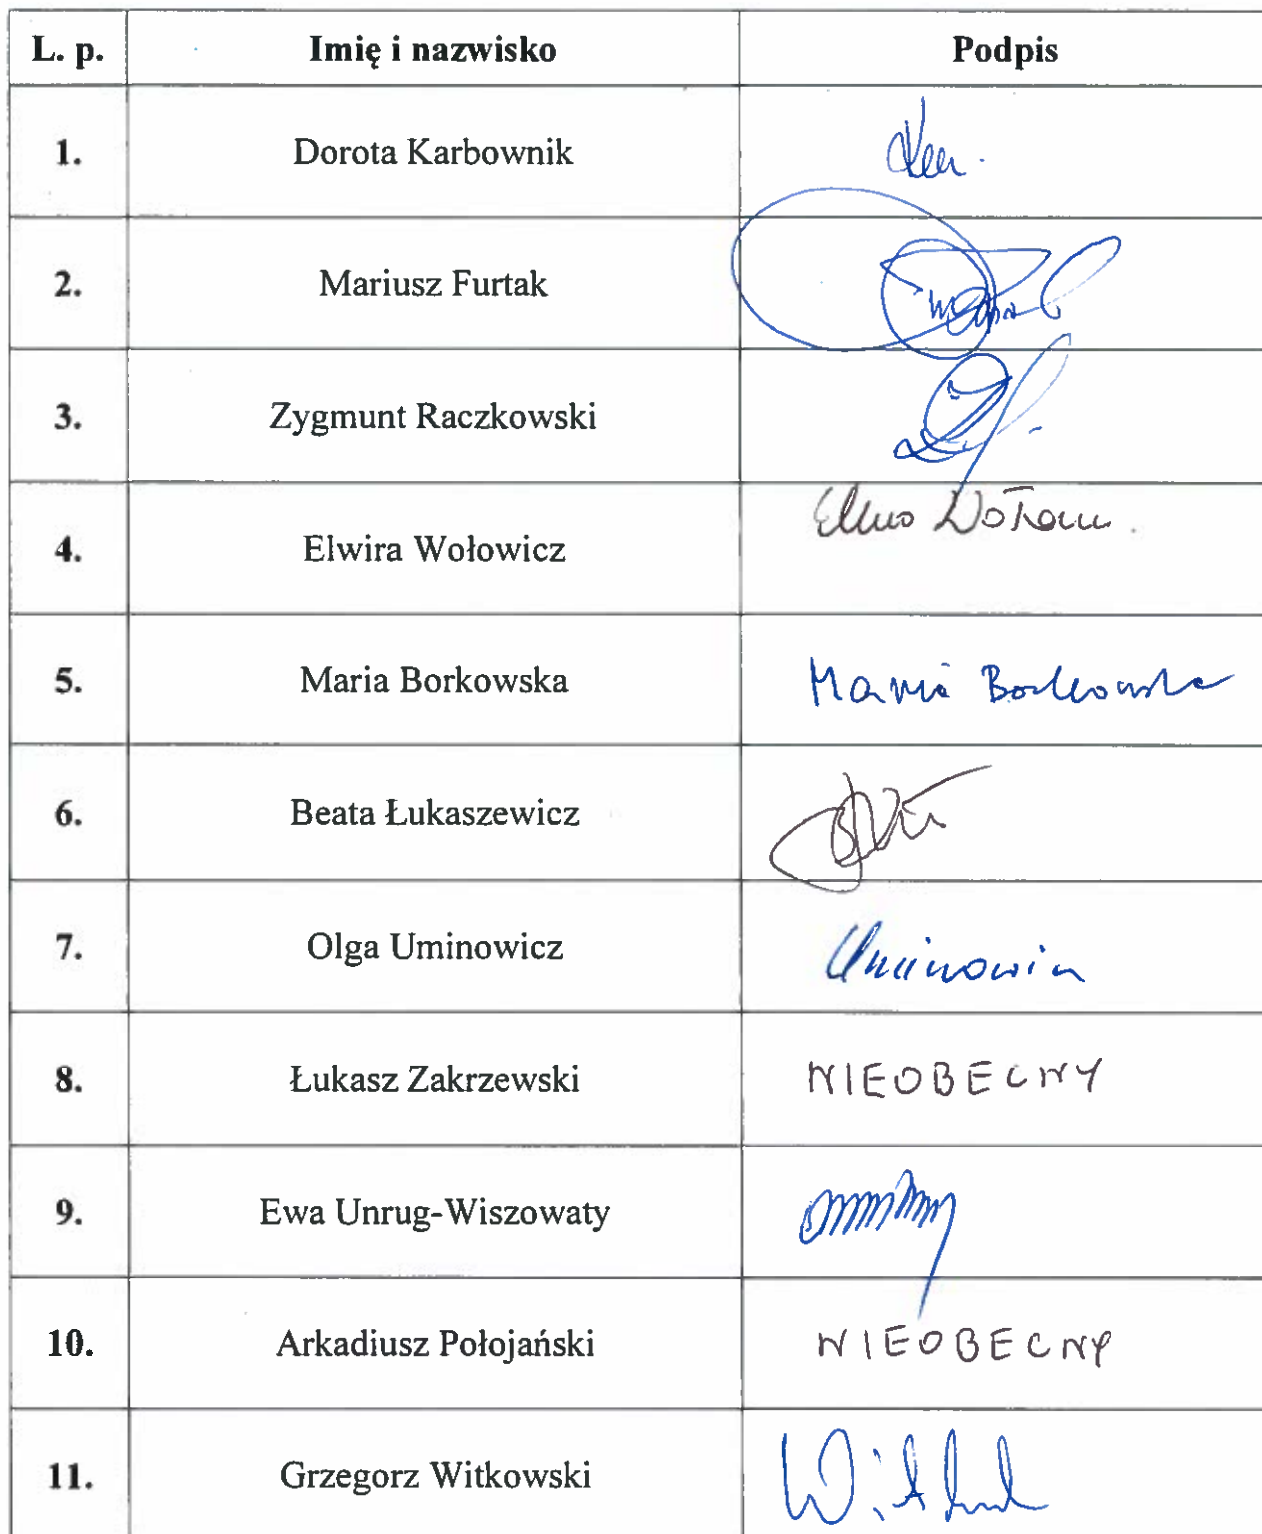 L. p. Imię i nazwisko Podpis
1. Dorota Karbownik
2. Mariusz Furtak
3. Zygmunt Raczkowski
4. Elwira Wołowicz
5. Maria Borkowska Maria Borkowska
6. Beata Łukaszewicz
7. Olga Uminowicz Uminowicz
8. Łukasz Zakrzewski NIEOBECNY
9. Ewa Unrug-Wiszowaty
10. Arkadiusz Połojański NIEOBECNY
11. Grzegorz Witkowski